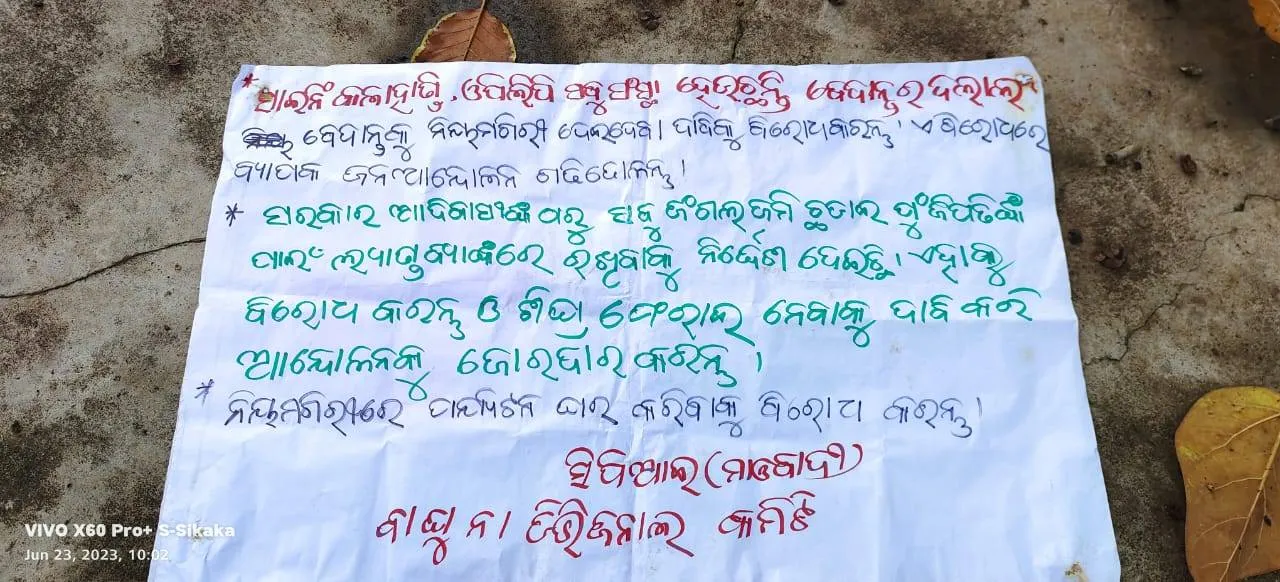 * ସାଇନିଂ କଳାହାଣ୍ଡି, ଓପିଲିପି ସବୁ ସଂସ୍ଥା ହେଉଛନ୍ତି ବେଦାନ୍ତର ଦଲାଲ
ବେଦାନ୍ତକୁ ନିୟମଗିରୀ ଦେଇଦେବା ଦାବିକୁ ବିରୋଧକରନ୍ତୁ। ଏ ବିରୋଧରେ
ବ୍ୟାପକ ଜନଆନ୍ଦୋଳନ ଗଢିତୋଳନ୍ତୁ।
* ସରକାର ଆଦିବାସୀଙ୍କ ଠାରୁ ସବୁ ଜଂଗଲ ଜମି ଛଡାଇ ପୁଂଜିପତିଙ୍କ
ପାଇଂ ଲ୍ୟାଣ୍ଡବ୍ୟାଙ୍କରେ ରଖିବାକୁ ନିର୍ଦ୍ଦେଶ ଦେଇଛି। ଏହାକୁ
ବିରୋଧ କରନ୍ତୁ ଓ ଶିଘ୍ର ଫେରାଇ ନେବାକୁ ଦାବି କରି
ଆନ୍ଦୋଳନକୁ ଜୋରଦାର କରନ୍ତୁ।
* ନିୟମଗିରୀରେ ପର୍ଯ୍ୟଟନ ଘାଇ କରିବାକୁ ବିରୋଧ କରନ୍ତୁ।
ସିପିଆଇ (ମାଓବାଦୀ)
ବାଘୁନା ଡିଭିଜନାଲ କମିଟି
VIVO X60 Pro+ S-Sikaka
Jun 23, 2023, 10:02